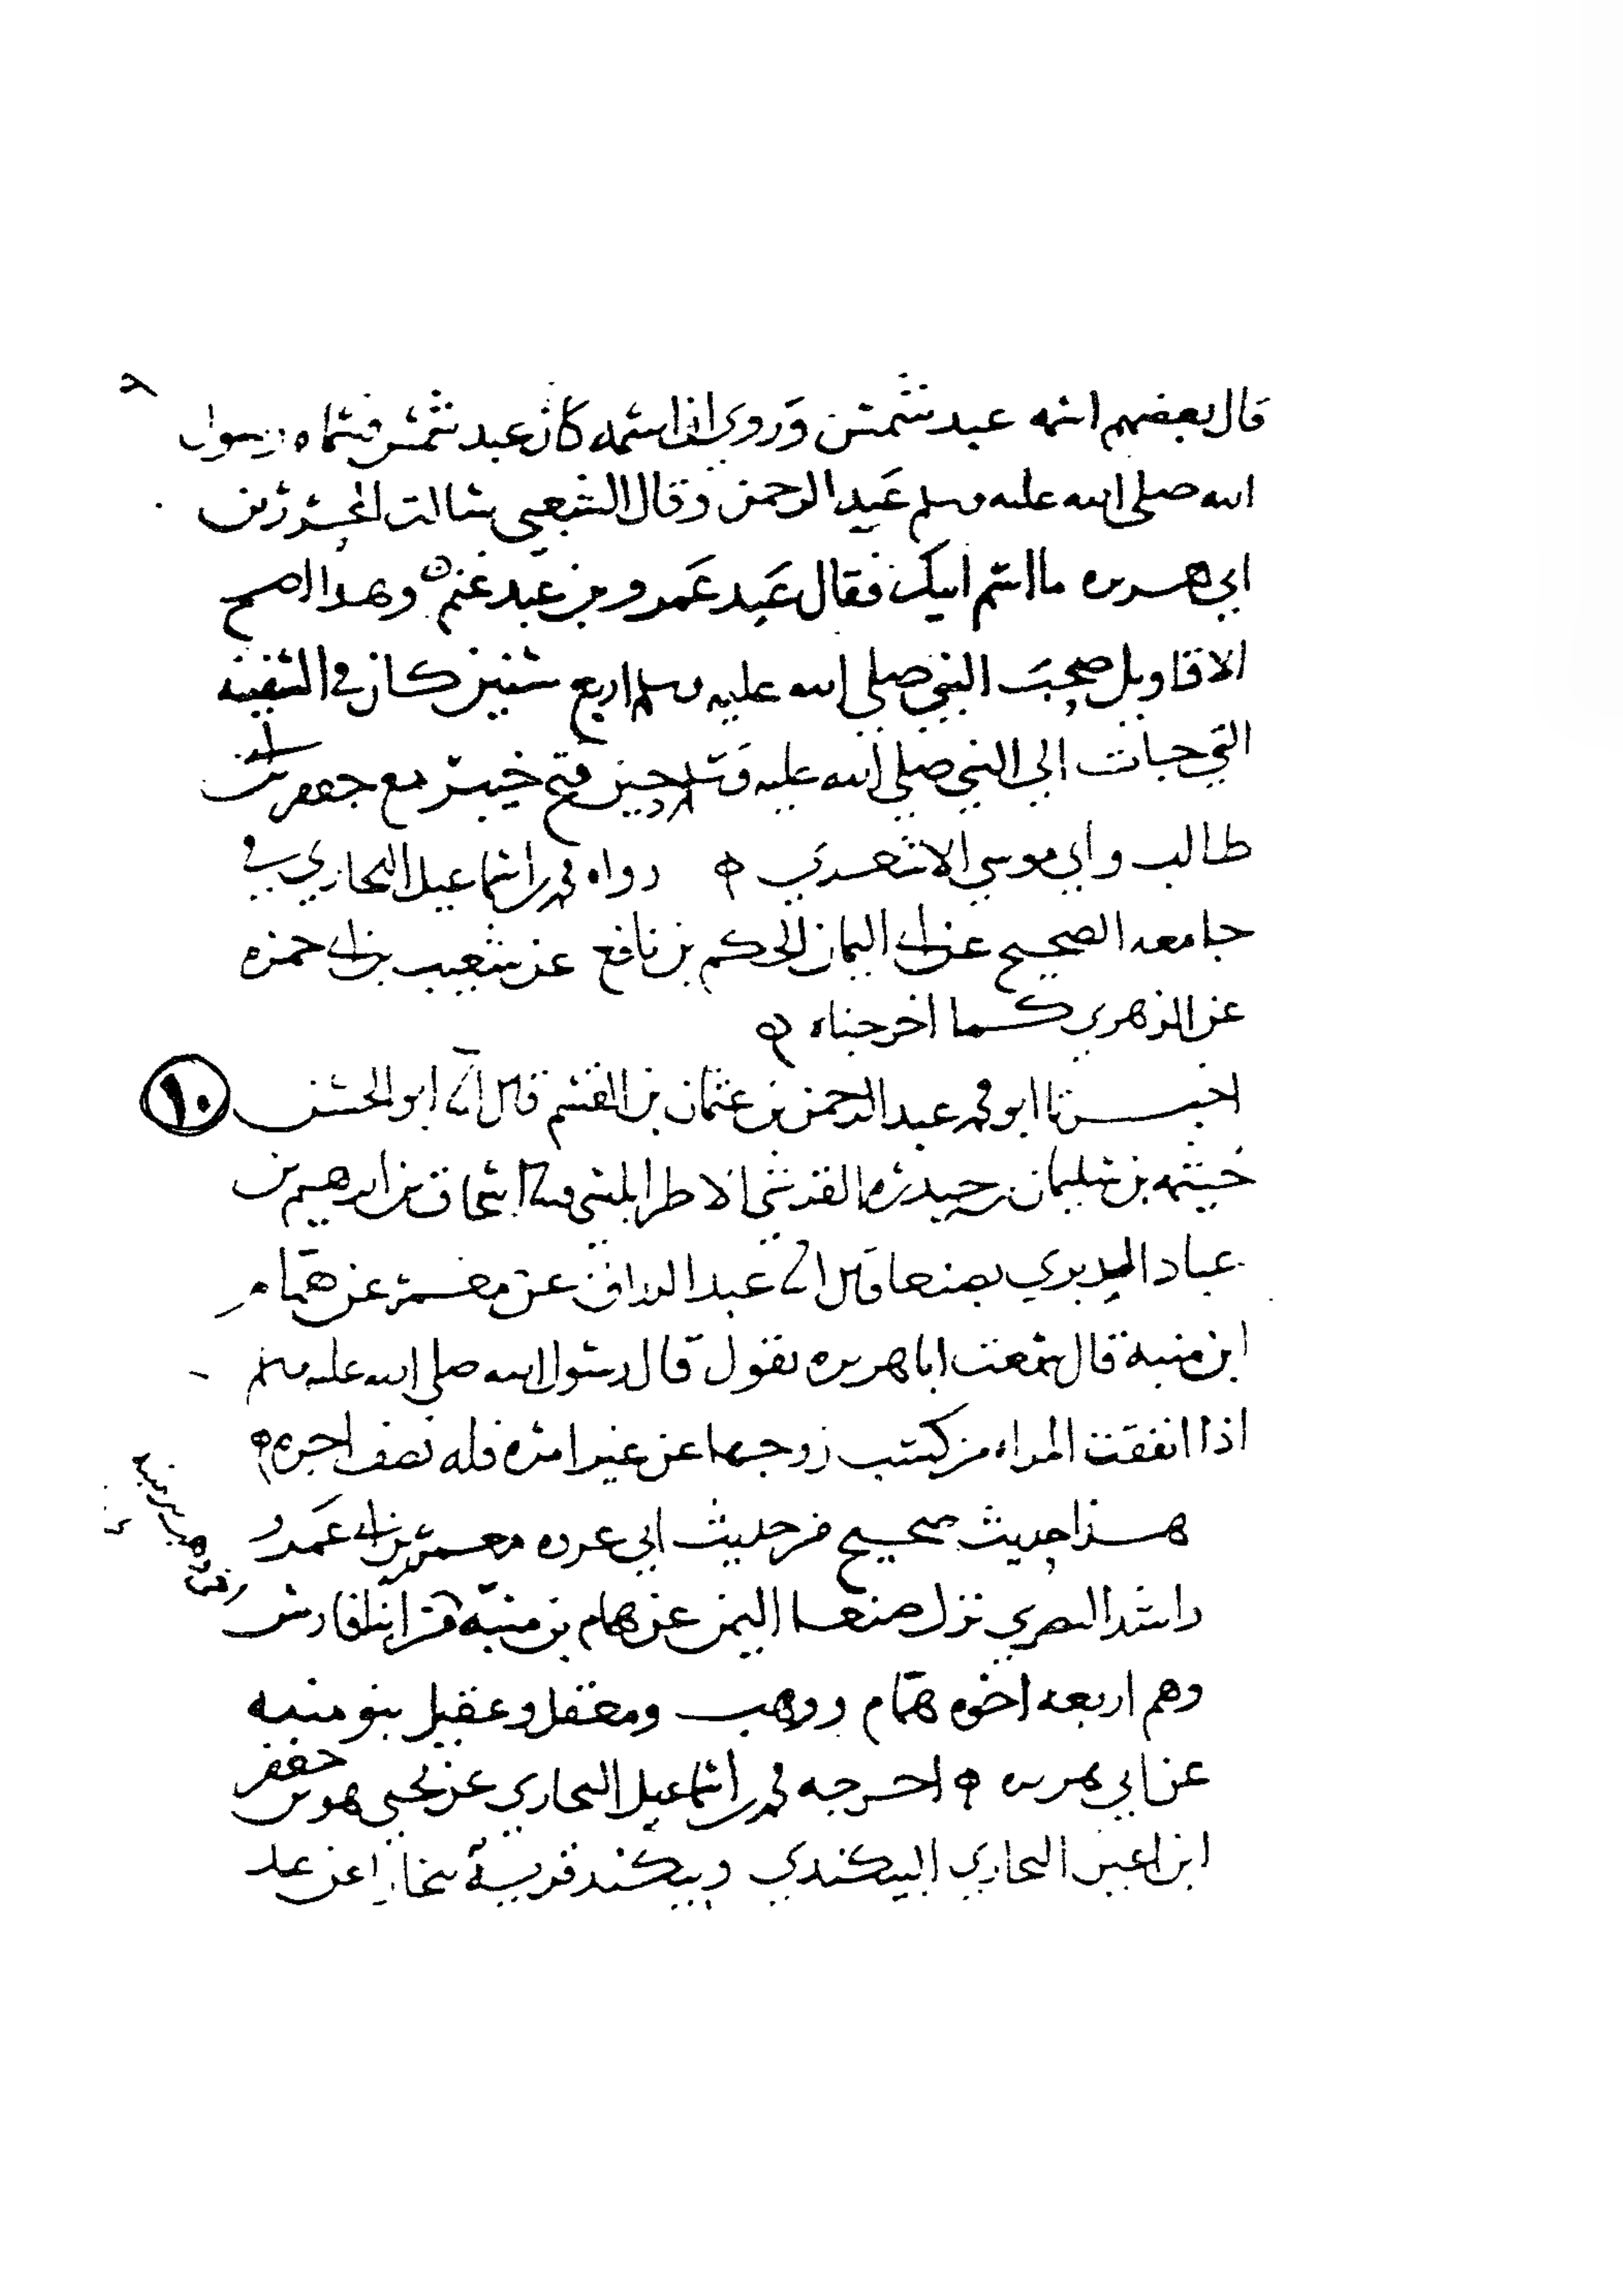 قال بعضهم اسمه عبد شمس وروي ان اسمه كان عبد شمس فسماه رسول
الله صلى الله عليه وسلم عبد الرحمن وقال الشعبي سالت المحرر بن
ابي هريره ما اسم ابيك فقال عبد عمرو بن عبد غنم وهذا اصح
الاقاويل صحب النبي صلى الله عليه وسلم اربع سنين كان في السفينه
التي جات الى النبي صلى الله عليه وسلم حين فتح خيبر مع جعفر بن ابي
طالب وابي موسي الاشعري ه رواه محمد بن اسماعيل البخاري في
جامعه الصحيح عن ابي اليمان الحكم بن نافع عن شعيب بن ابي حمزه
عن الزهري كما اخرجناه ه
اخبرنا ابو محمد عبد الرحمن بن عثمان بن القسم قال انا ابو الحسن
١٠
خيثمه بن سليمان بن حيدره القرشي الاطرابلسي اسحاق بن ابرهيم بن
عباد الدبري بصنعا قال انا عبد الرزاق عن معمر عن همام
ابن منبه قال سمعت ابا هريره يقول قال رسول الله صلى الله عليه وسلم
اذا انفقت المراه من كسب زوجها عن غير امره فله نصف اجره ه
هذا حديث صحيح من حديث ابي عروه معمر بن ابي عمرو
راشد البصري نزل صنعا اليمن عن همام بن منبه من ابنا فارس
وهم اربعه اخوه همام ووهب ومعقل وعقيل بنو منبه
عن ابي هريره ه اخرجه محمد بن اسماعيل البخاري عن يحيى هو بن جعفر
ابن اعين البخاري البيكندي وبيكند قرية ببخارا عن عبد